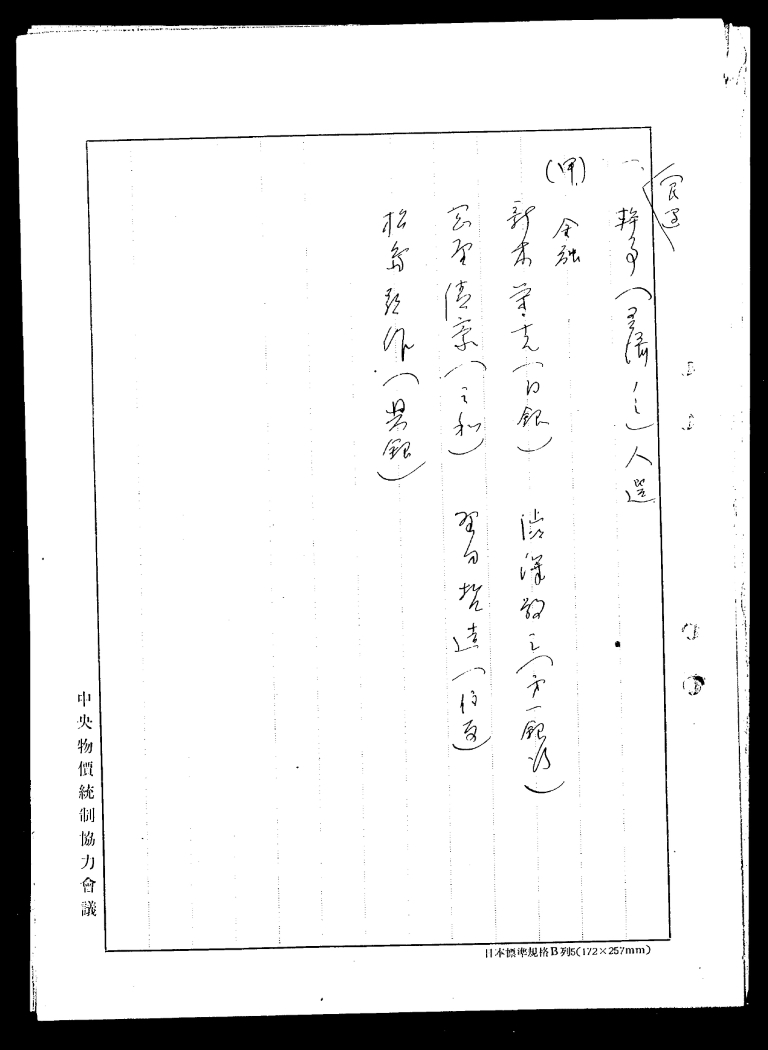 一、幹事(主済ノ三)人選
(甲)
金融
新木栄吉(日銀) 渋沢敬三(第一銀行)
清宗(三和) 野田哲造(住友)
松島・作(興銀)
中央物價統制協力會議
日本標準規格B列5(172×257mm)